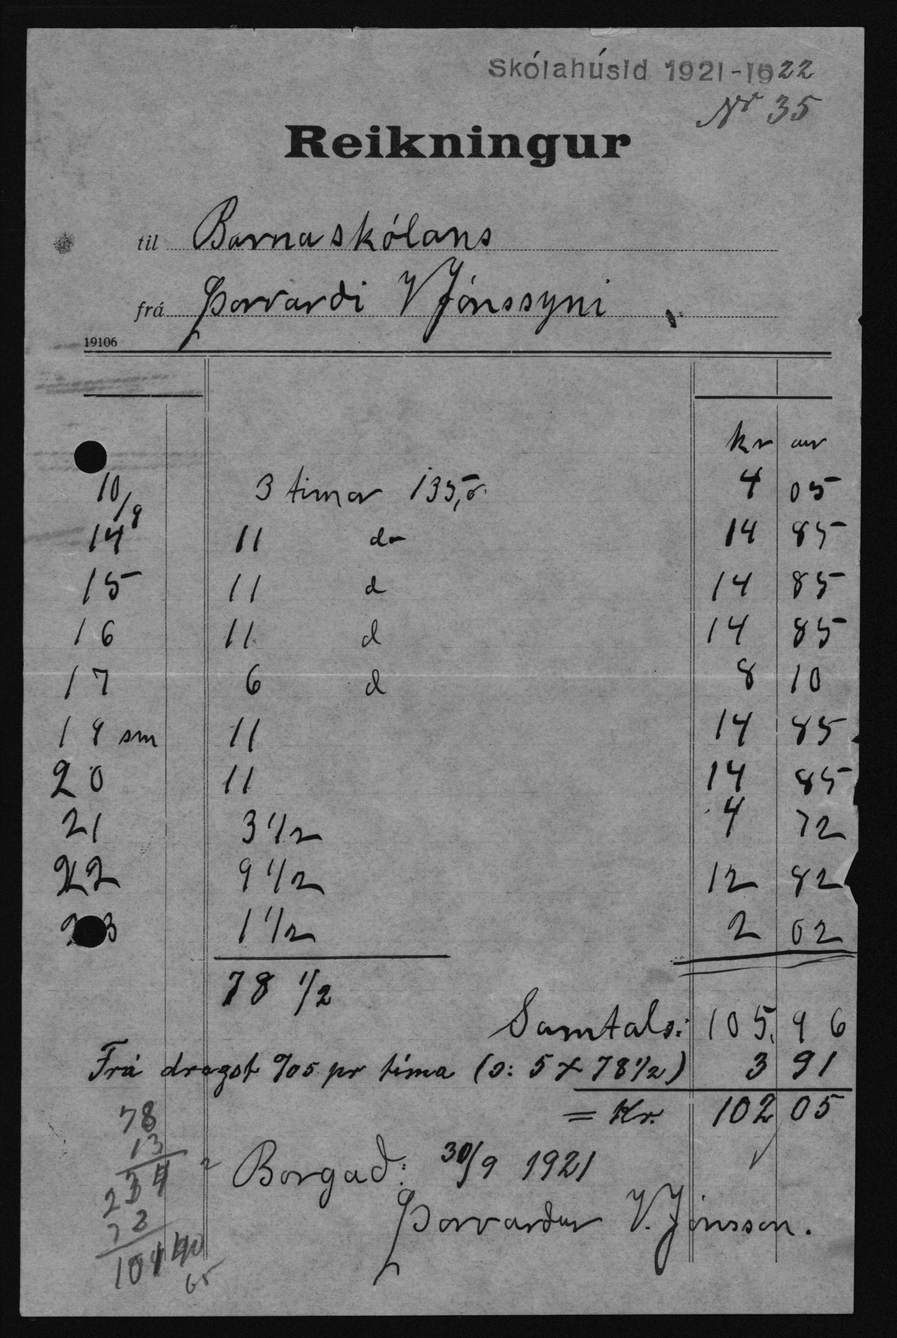 Skólahúsid 1921-1922
Nr 35
Reikningur
til Barnaskólans
frá Þorvarði V Jónssyni
19106
kr aur
10/9 3 timar 135,0 4 05
14 11 do 14 85
15 11 d 14 85
16 11 d 14 85
17 6 d 8 10
19 sm 11 14 85
20 11 14 85
21 3 1/2 4 72
22 9 1/2 12 82
23 1 1/2 2 02
78 1/2
Samtals: 105,96
Frá dragst %05 pr tíma (ɔ: 5 x 78 1/2) 3 91
= Kr. 102 05
78
13
234
Borgað: 30/9 1921
Þorvarður V. Jónsson.